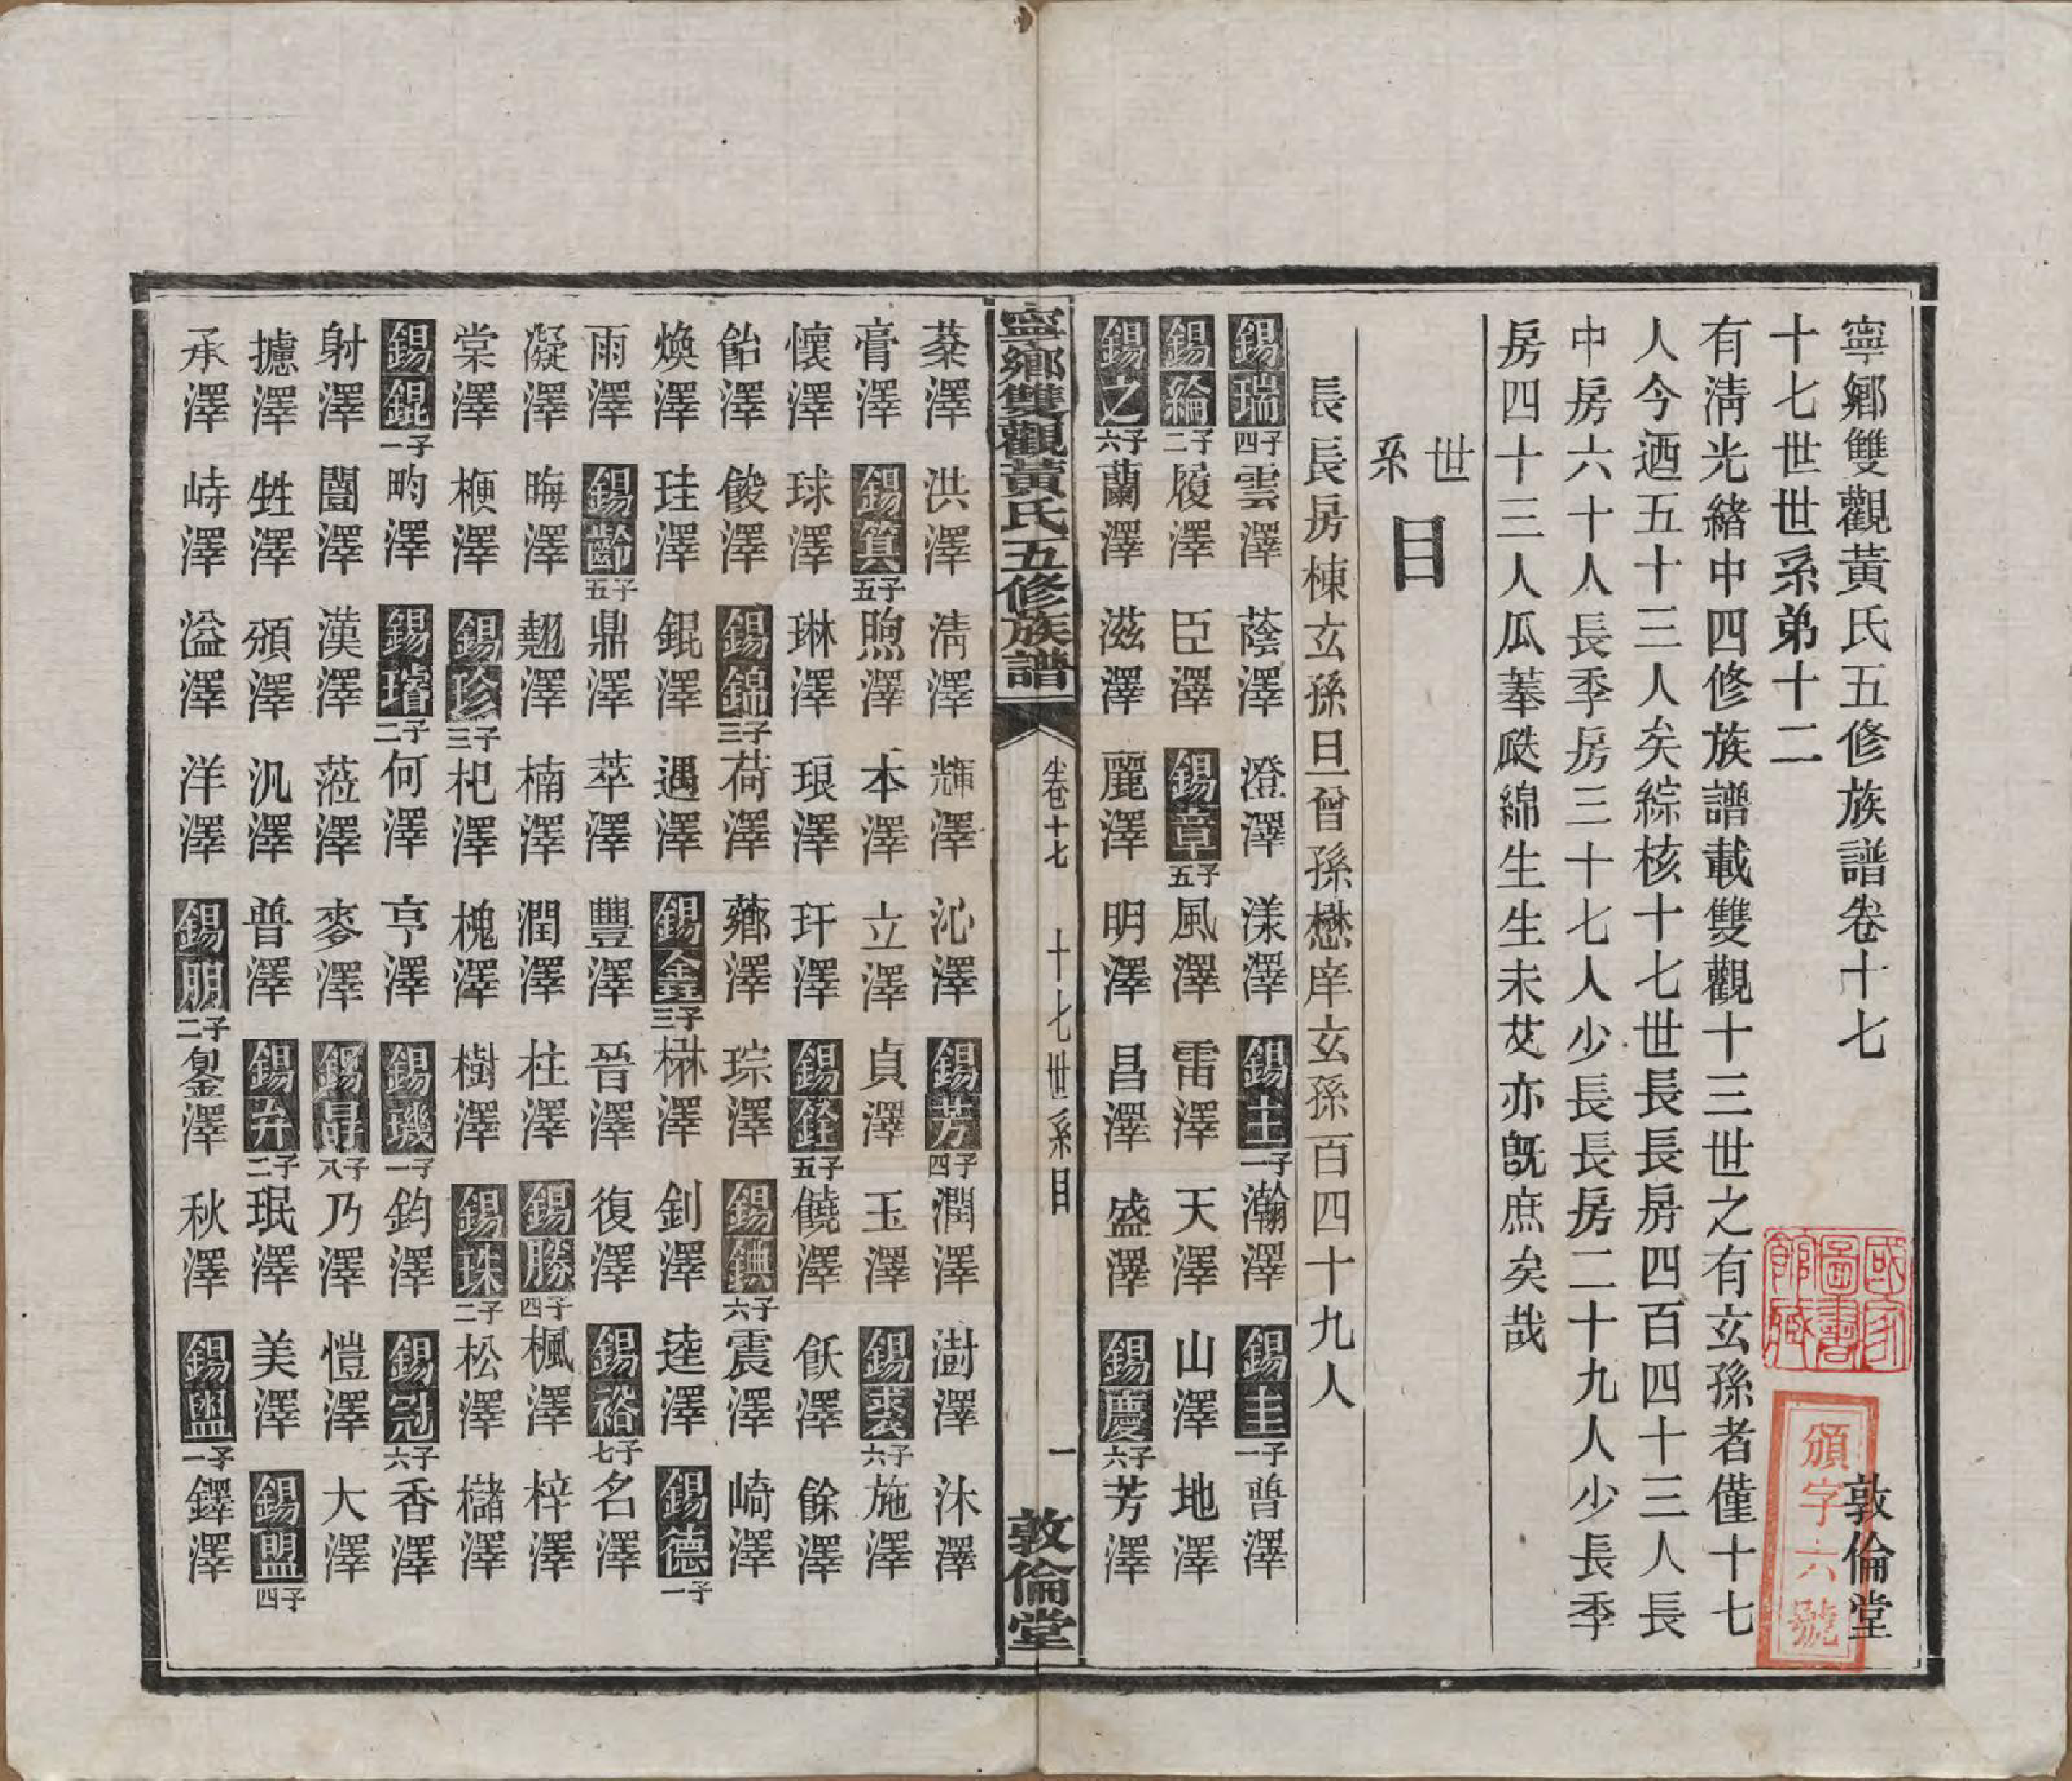 寧鄉雙觀黃氏五修族譜卷十七 敦倫堂
十七世世系弟十二
有淸光緒中四修族譜載雙觀十三世之有玄孫者僅十七
人今迺五十三人矣綜核十七世長長房四百四十三人長
中房六十人長季房三十七人少長長房二十九人少長季
房四十三人瓜菶瓞綿生生未艾亦旣庶矣哉
世系目
長長房棟玄孫旦曾孫懋庠玄孫百四十九人
錫瑞四子 雲澤 蔭澤 澄澤 漾澤 錫土一子 瀚澤 錫圭一子 普澤
錫綸二子 履澤 臣澤 錫章五子 風澤 雷澤 天澤 山澤 地澤
錫之六子 蘭澤 滋澤 麗澤 明澤 昌澤 盛澤 錫慶六子 芳澤
寧鄉雙觀黃氏五修族譜 卷十七 十七世系目 一 敦倫堂
棻澤 洪澤 淸澤 輝澤 沁澤 錫芳四子 潤澤 澍澤 沐澤
膏澤 錫箕五子 煦澤 本澤 立澤 貞澤 玉澤 錫裘六子 施澤
懷澤 球澤 琳澤 琅澤 玕澤 錫銓五子 饒澤 飫澤 餘澤
飴澤 餕澤 錫錦三子 荷澤 薌澤 琮澤 錫錪六子 震澤 崎澤
煥澤 珪澤 錕澤 遇澤 錫鑫三子 楙澤 釗澤 逵澤 錫德一子
雨澤 錫齡五子 鼎澤 萃澤 豐澤 晉澤 復澤 錫裕七子 名澤
凝澤 晦澤 翹澤 楠澤 潤澤 柱澤 錫勝四子 楓澤 梓澤
棠澤 梗澤 錫珍三子 杞澤 槐澤 樹澤 錫珠二子 松澤 櫧澤
錫錕一子 畇澤 錫璿二子 何澤 亨澤 錫璣一子 鈞澤 錫冠六子 香澤
射澤 闓澤 漢澤 蒞澤 麥澤 錫㝵八子 乃澤 愷澤 大澤
攄澤 甡澤 頒澤 汎澤 普澤 錫弁二子 珉澤 美澤 錫盟四子
承澤 峙澤 溢澤 洋澤 錫朋二子 秋澤 錫盥一子 鐸澤
國家圖書館藏
頒字六號